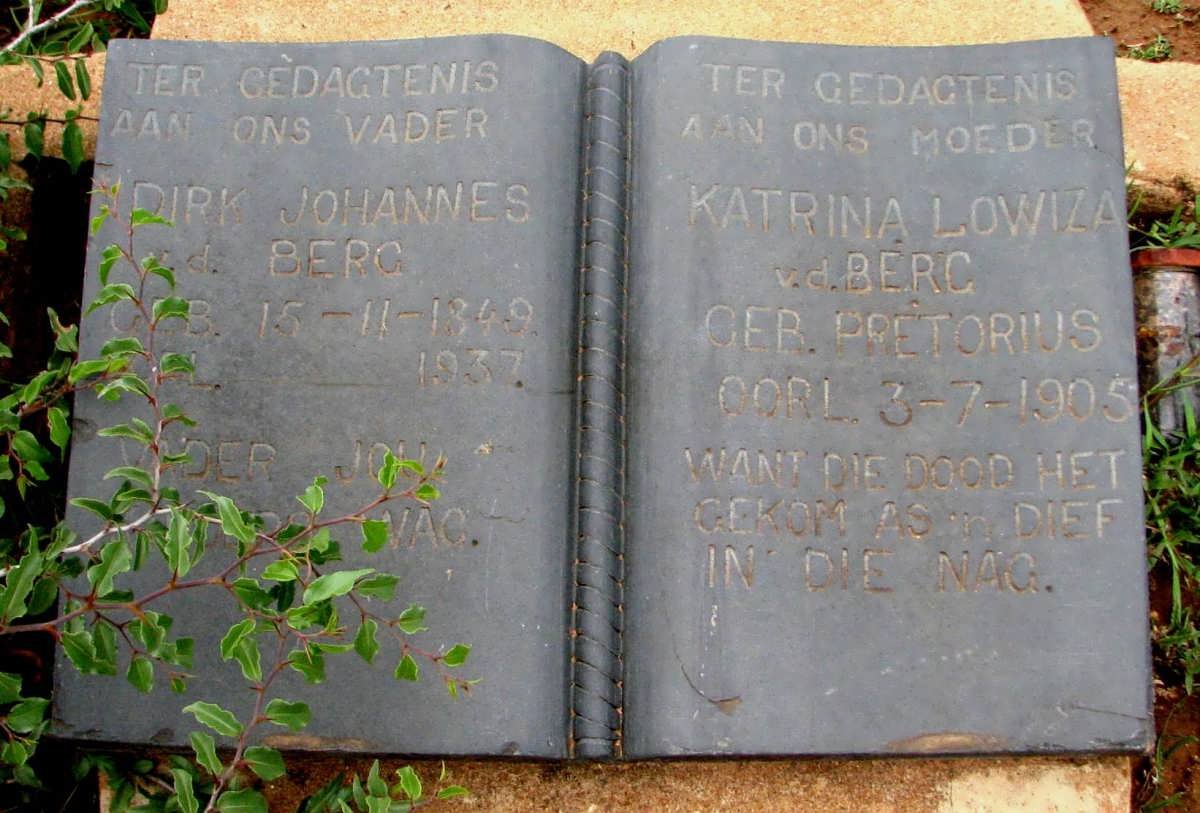 TER GEDAGTENIS
AAN ONS VADER
DIRK JOHANNES
v.d. BERG
GEB. 15-11-1849.
1937.
VADER
WAG.
TER GEDAGTENIS
AAN ONS MOEDER
KATRINA LOWIZA
v.d. BERG
GEB. PRETORIUS
OORL. 3-7-1905
WANT DIE DOOD HET
GEKOM AS 'n DIEF
IN DIE NAG.